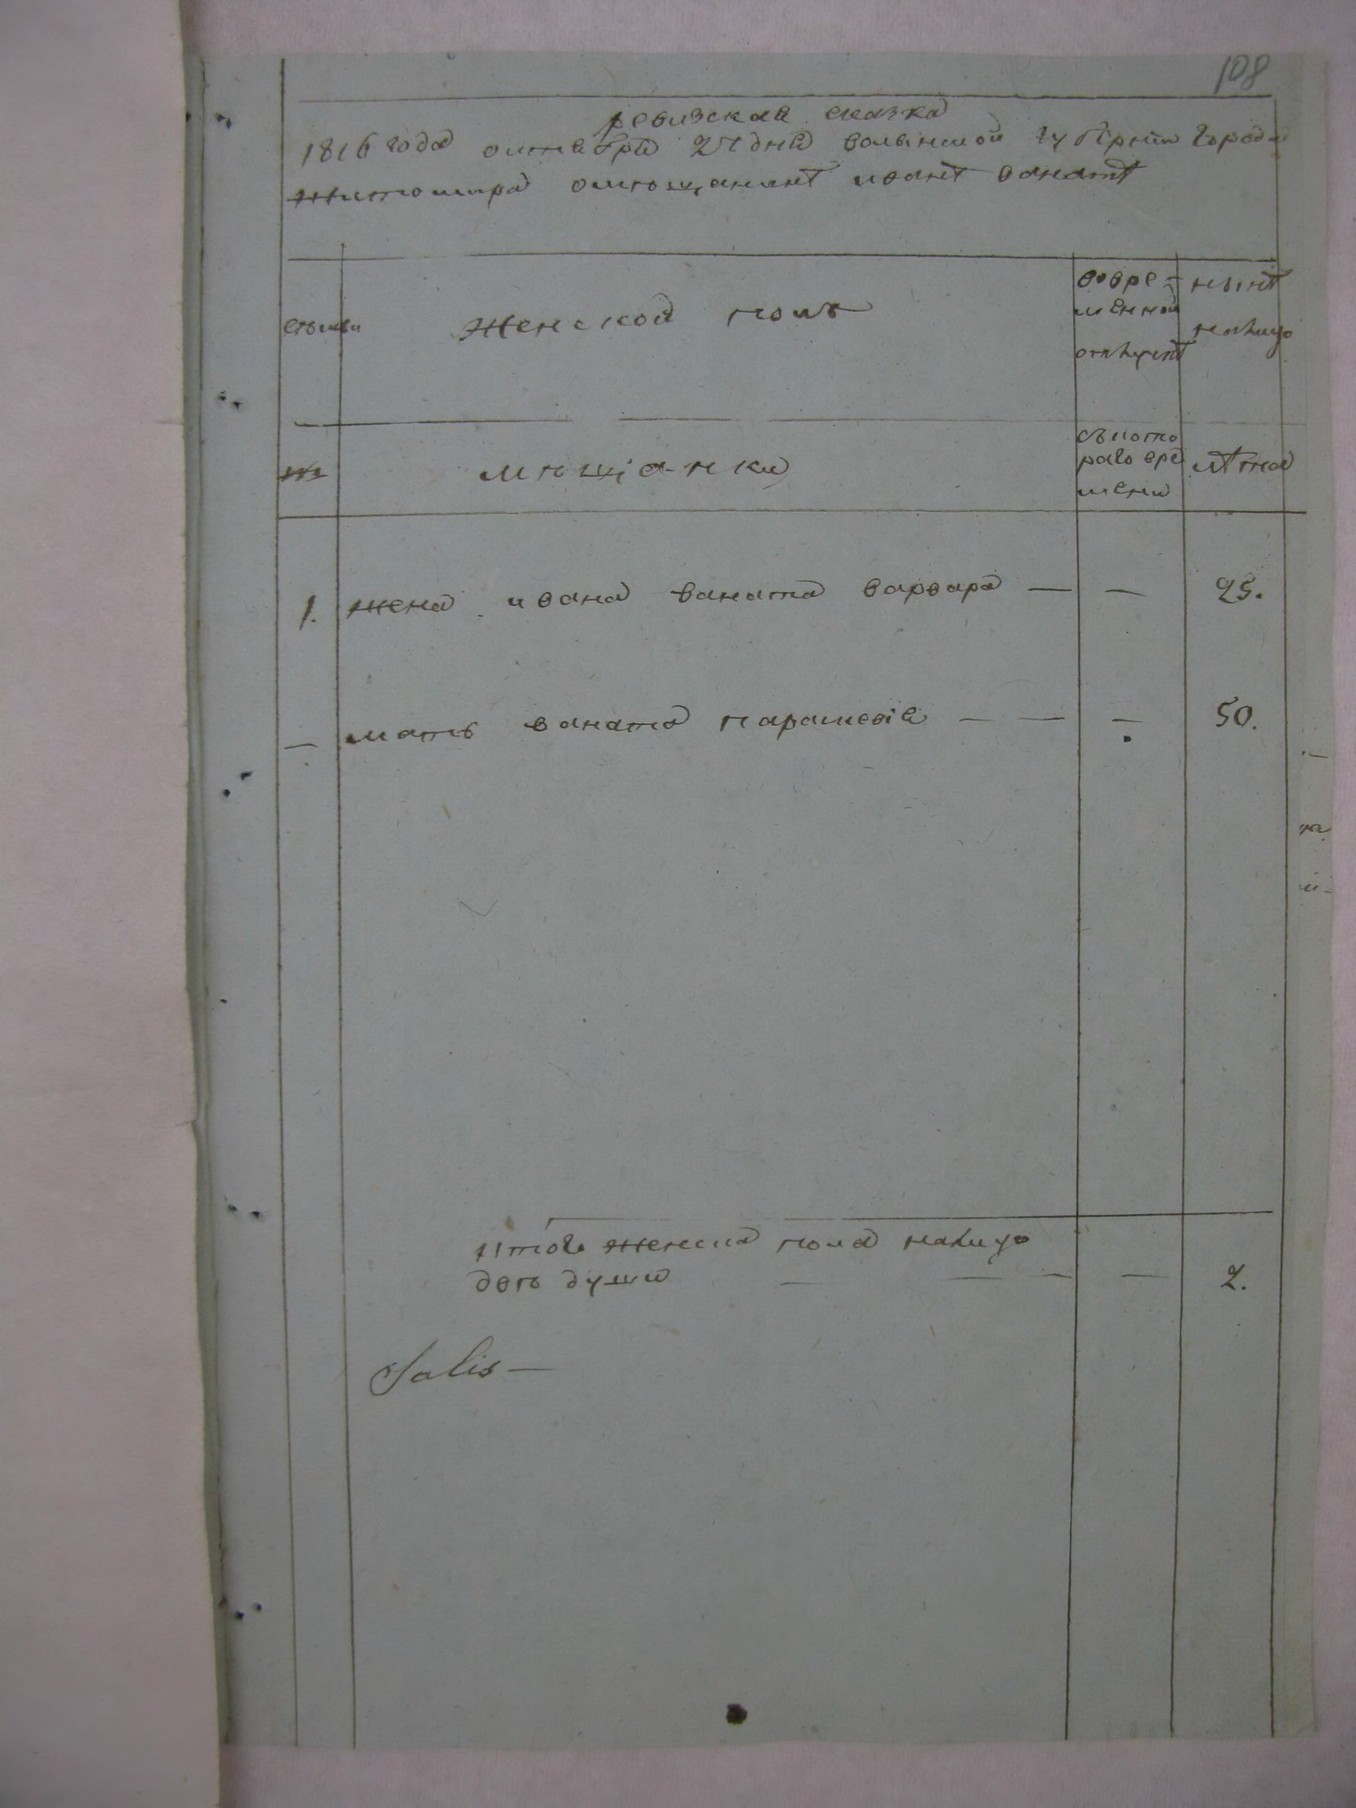 108
ревизская сказка
1816 года октебря 27 дня волынской губернии города
житомира омещанинѣ иванѣ ванатѣ
семьи
Женской полъ
вовре-
менной
отлучкѣ
нынѣ
налицо
мещанки
съкото
раго вре
мени
лѣта
1. жена ивана ваната варвара — — 25.
— мать ваната парасковія — — — 50.
Итого женска пола налицо
двѣ души — — — — 2.
Salis —